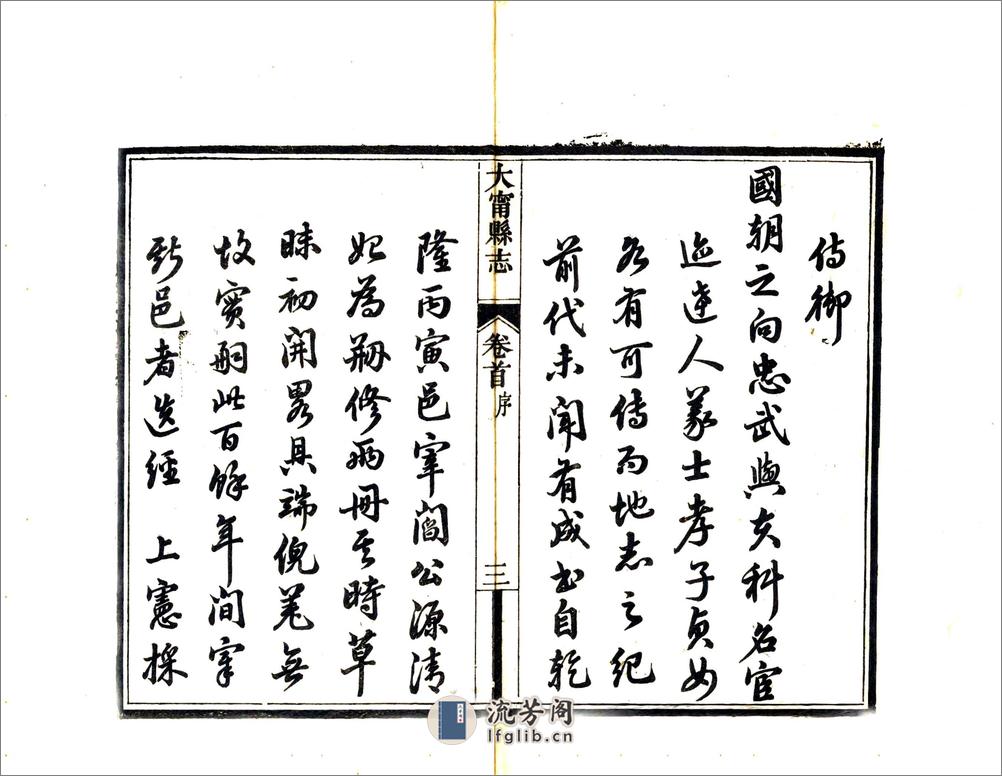 侍御
國朝之向忠武與夫科名宦
迹達人義士孝子貞女
各有可傳而地志之紀
前代未聞有成書自乾
大甯縣志
卷首 序
三
隆丙寅邑宰閻公源清
始為刱修兩冊其時草
昧初開畧具端倪羌無
故實嗣此百餘年間宰
斯邑者迭經 上憲採
流芳阁
lfglib.cn